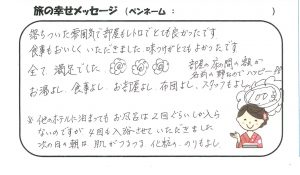 旅の幸せメッセージ（ペンネーム：　　　　）
落ちついた雰囲気で部屋もレトロでとても良かったです
食事もおいしくいただきました 味つけがとてもよかったです
全て満足でした
部屋の花の間の鶴が
名前の野なのでハッピー
お湯よし、食事よし、お部屋よし、布団よし、スタッフもよし
※他のホテルに泊まってもお風呂は2回ぐらいしか入ら
ないのですが4回も入浴させていただきました
次の日の朝は肌がつるつる化粧ののりもよし